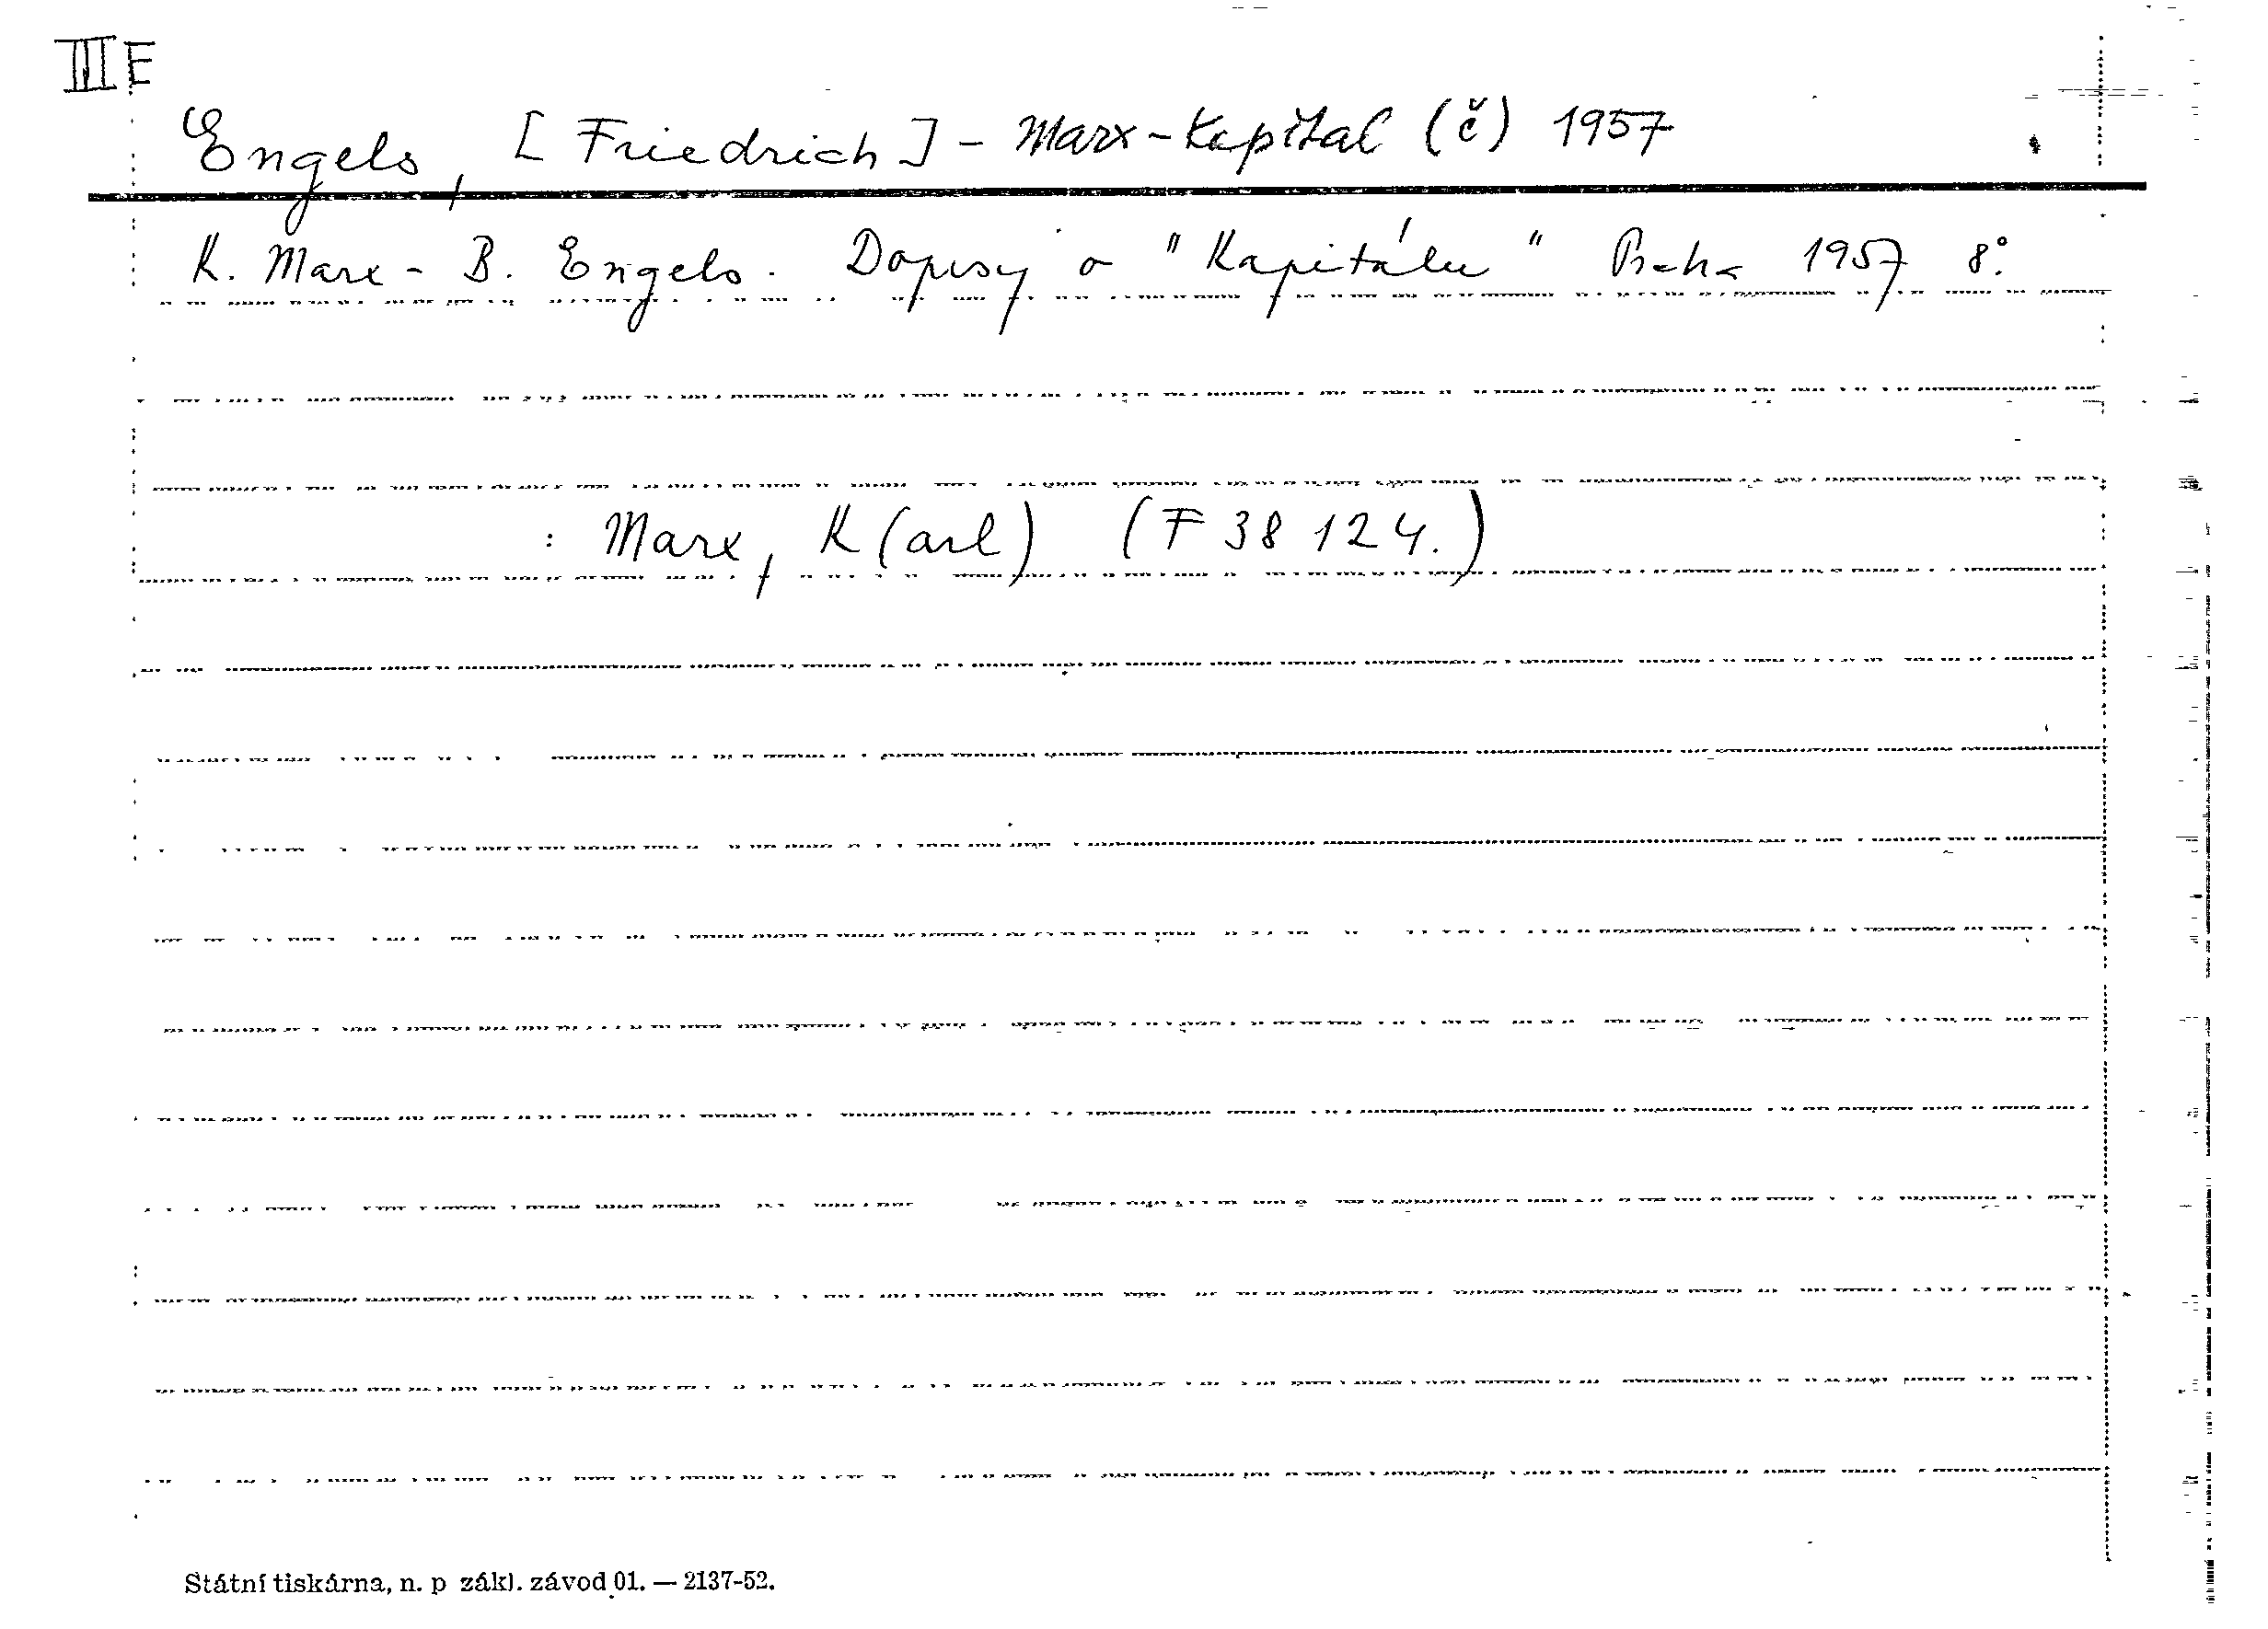 III E
Engels, [Friedrich] - Marx - Kapitál (č) 1957
K. Marx - B. Engels. Dopisy o "Kapitálu" Praha 1957 8°.
: Marx, K(arl) (F 38 124.)
Státní tiskárna, n. p zákl. závod 01. — 2137-52.